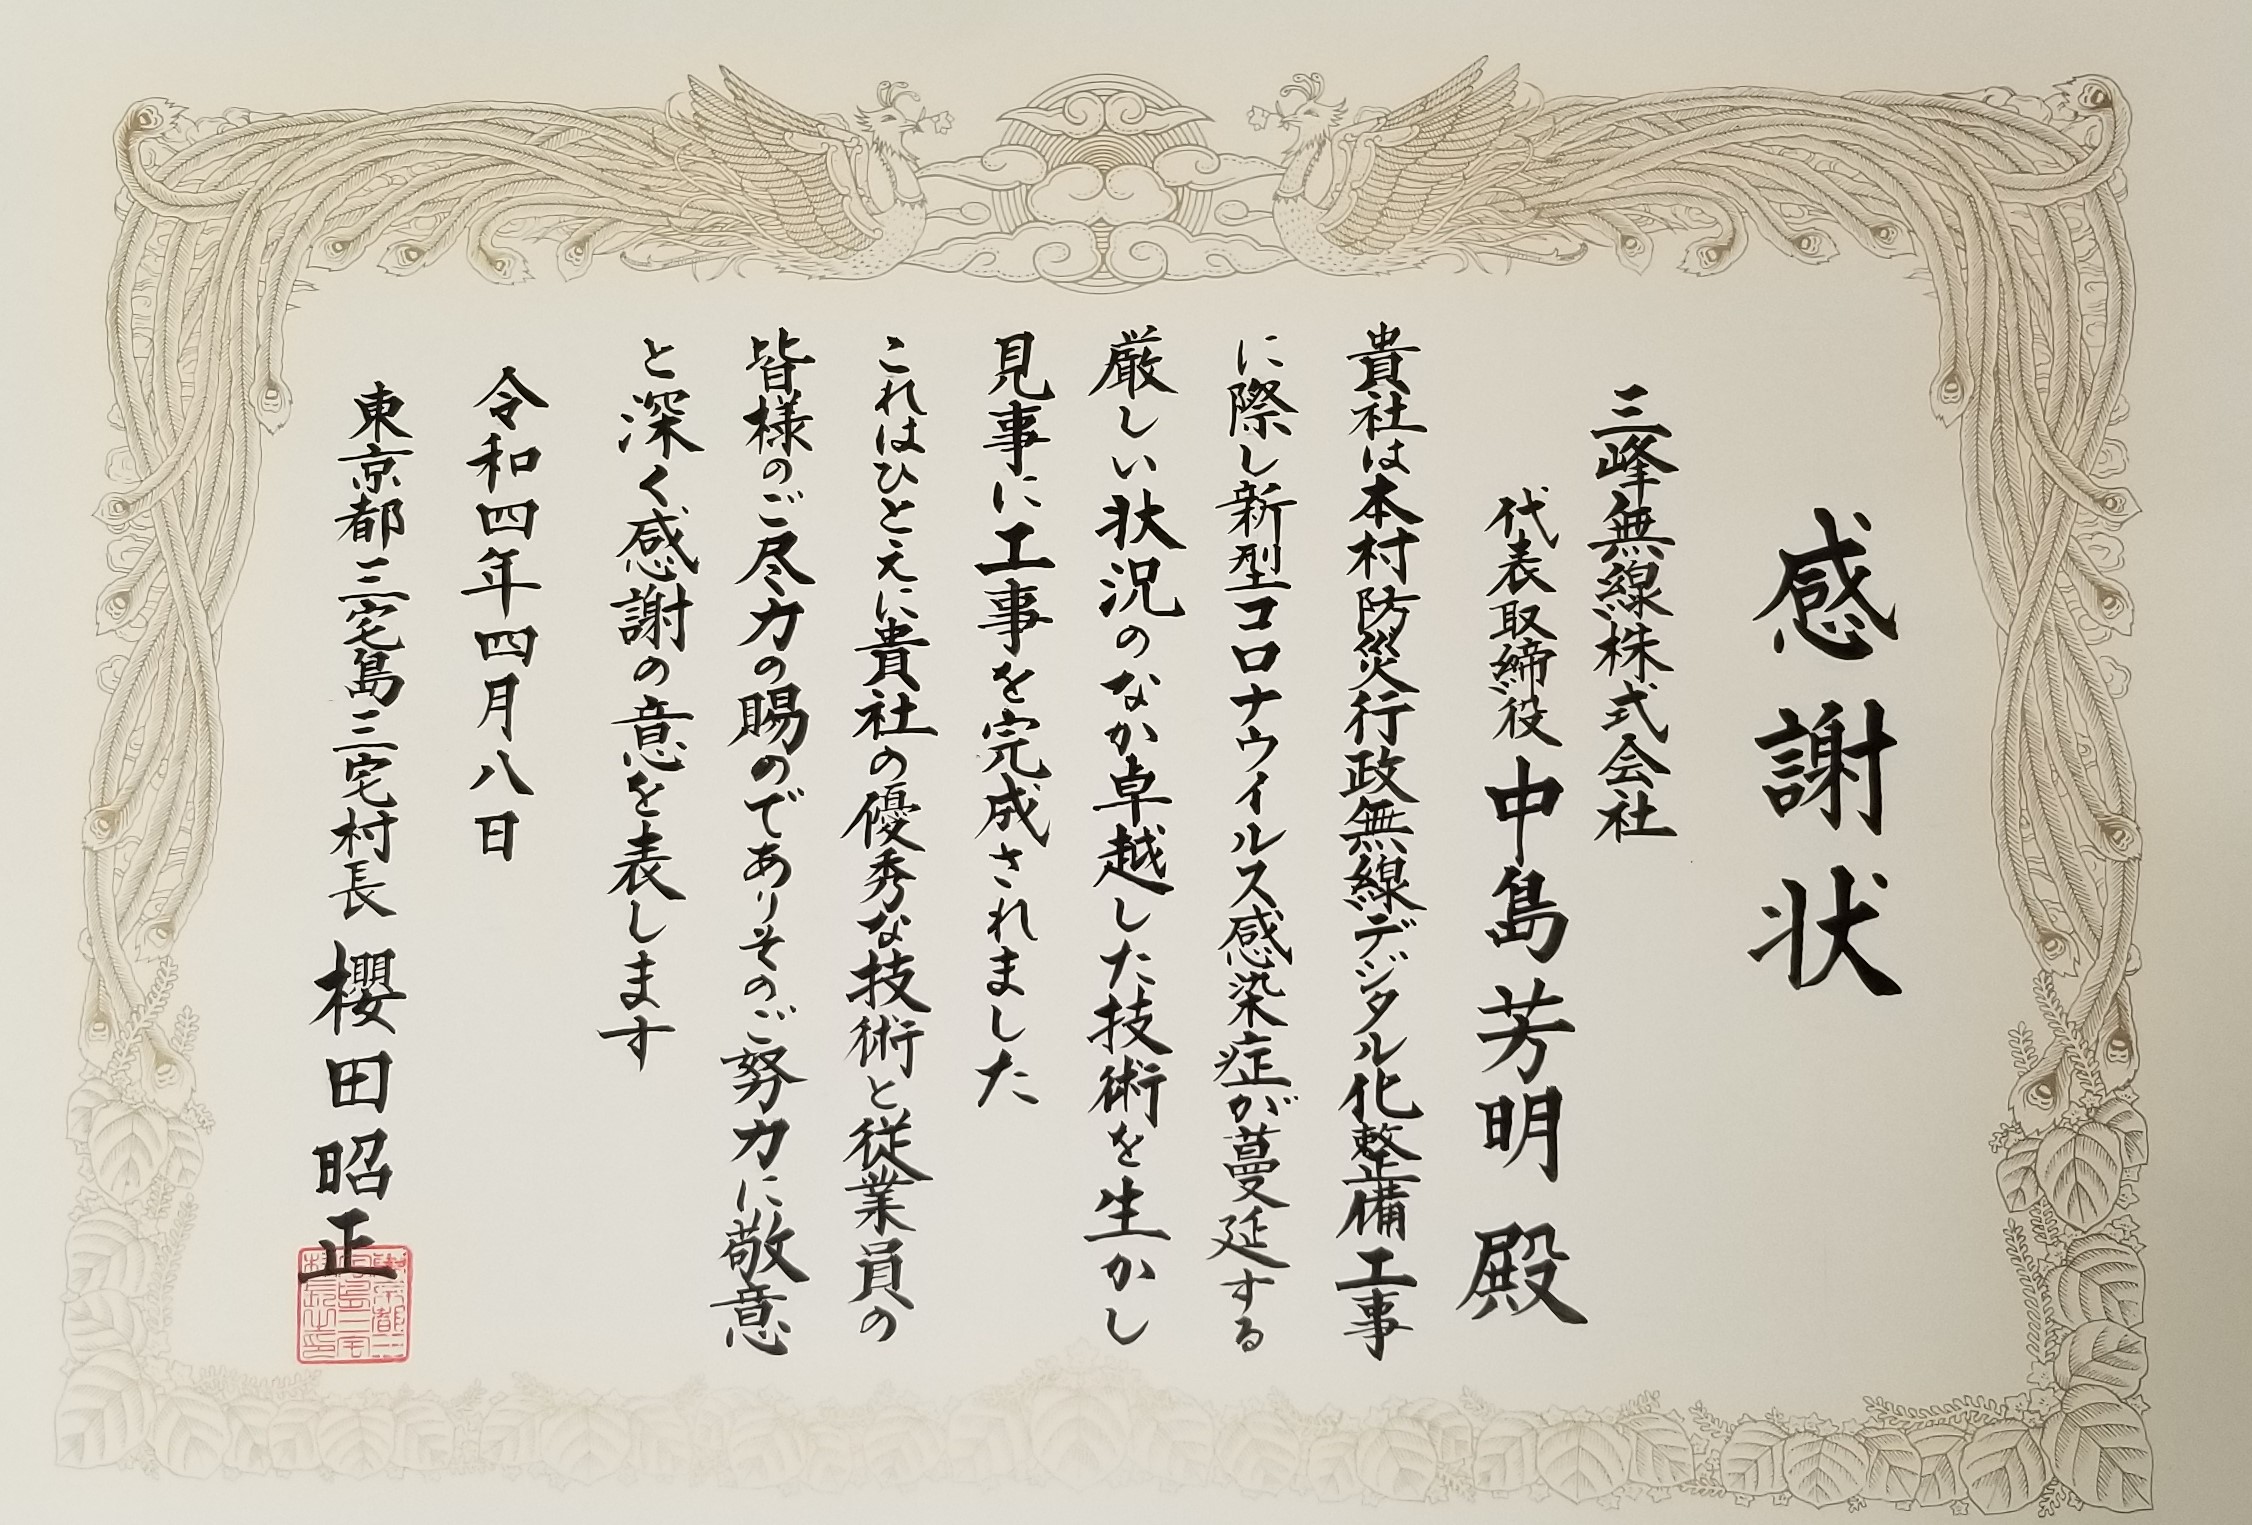 感謝状
三峰無線株式会社
代表取締役 中島芳明 殿
貴社は本村防災行政無線デジタル化整備工事
に際し新型コロナウイルス感染症が蔓延する
厳しい状況のなか卓越した技術を生かし
見事に工事を完成されました
これはひとえに貴社の優秀な技術と従業員の
皆様のご尽力の賜のでありそのご努力に敬意
と深く感謝の意を表します
令和四年四月八日
東京都三宅島三宅村長 櫻田昭正